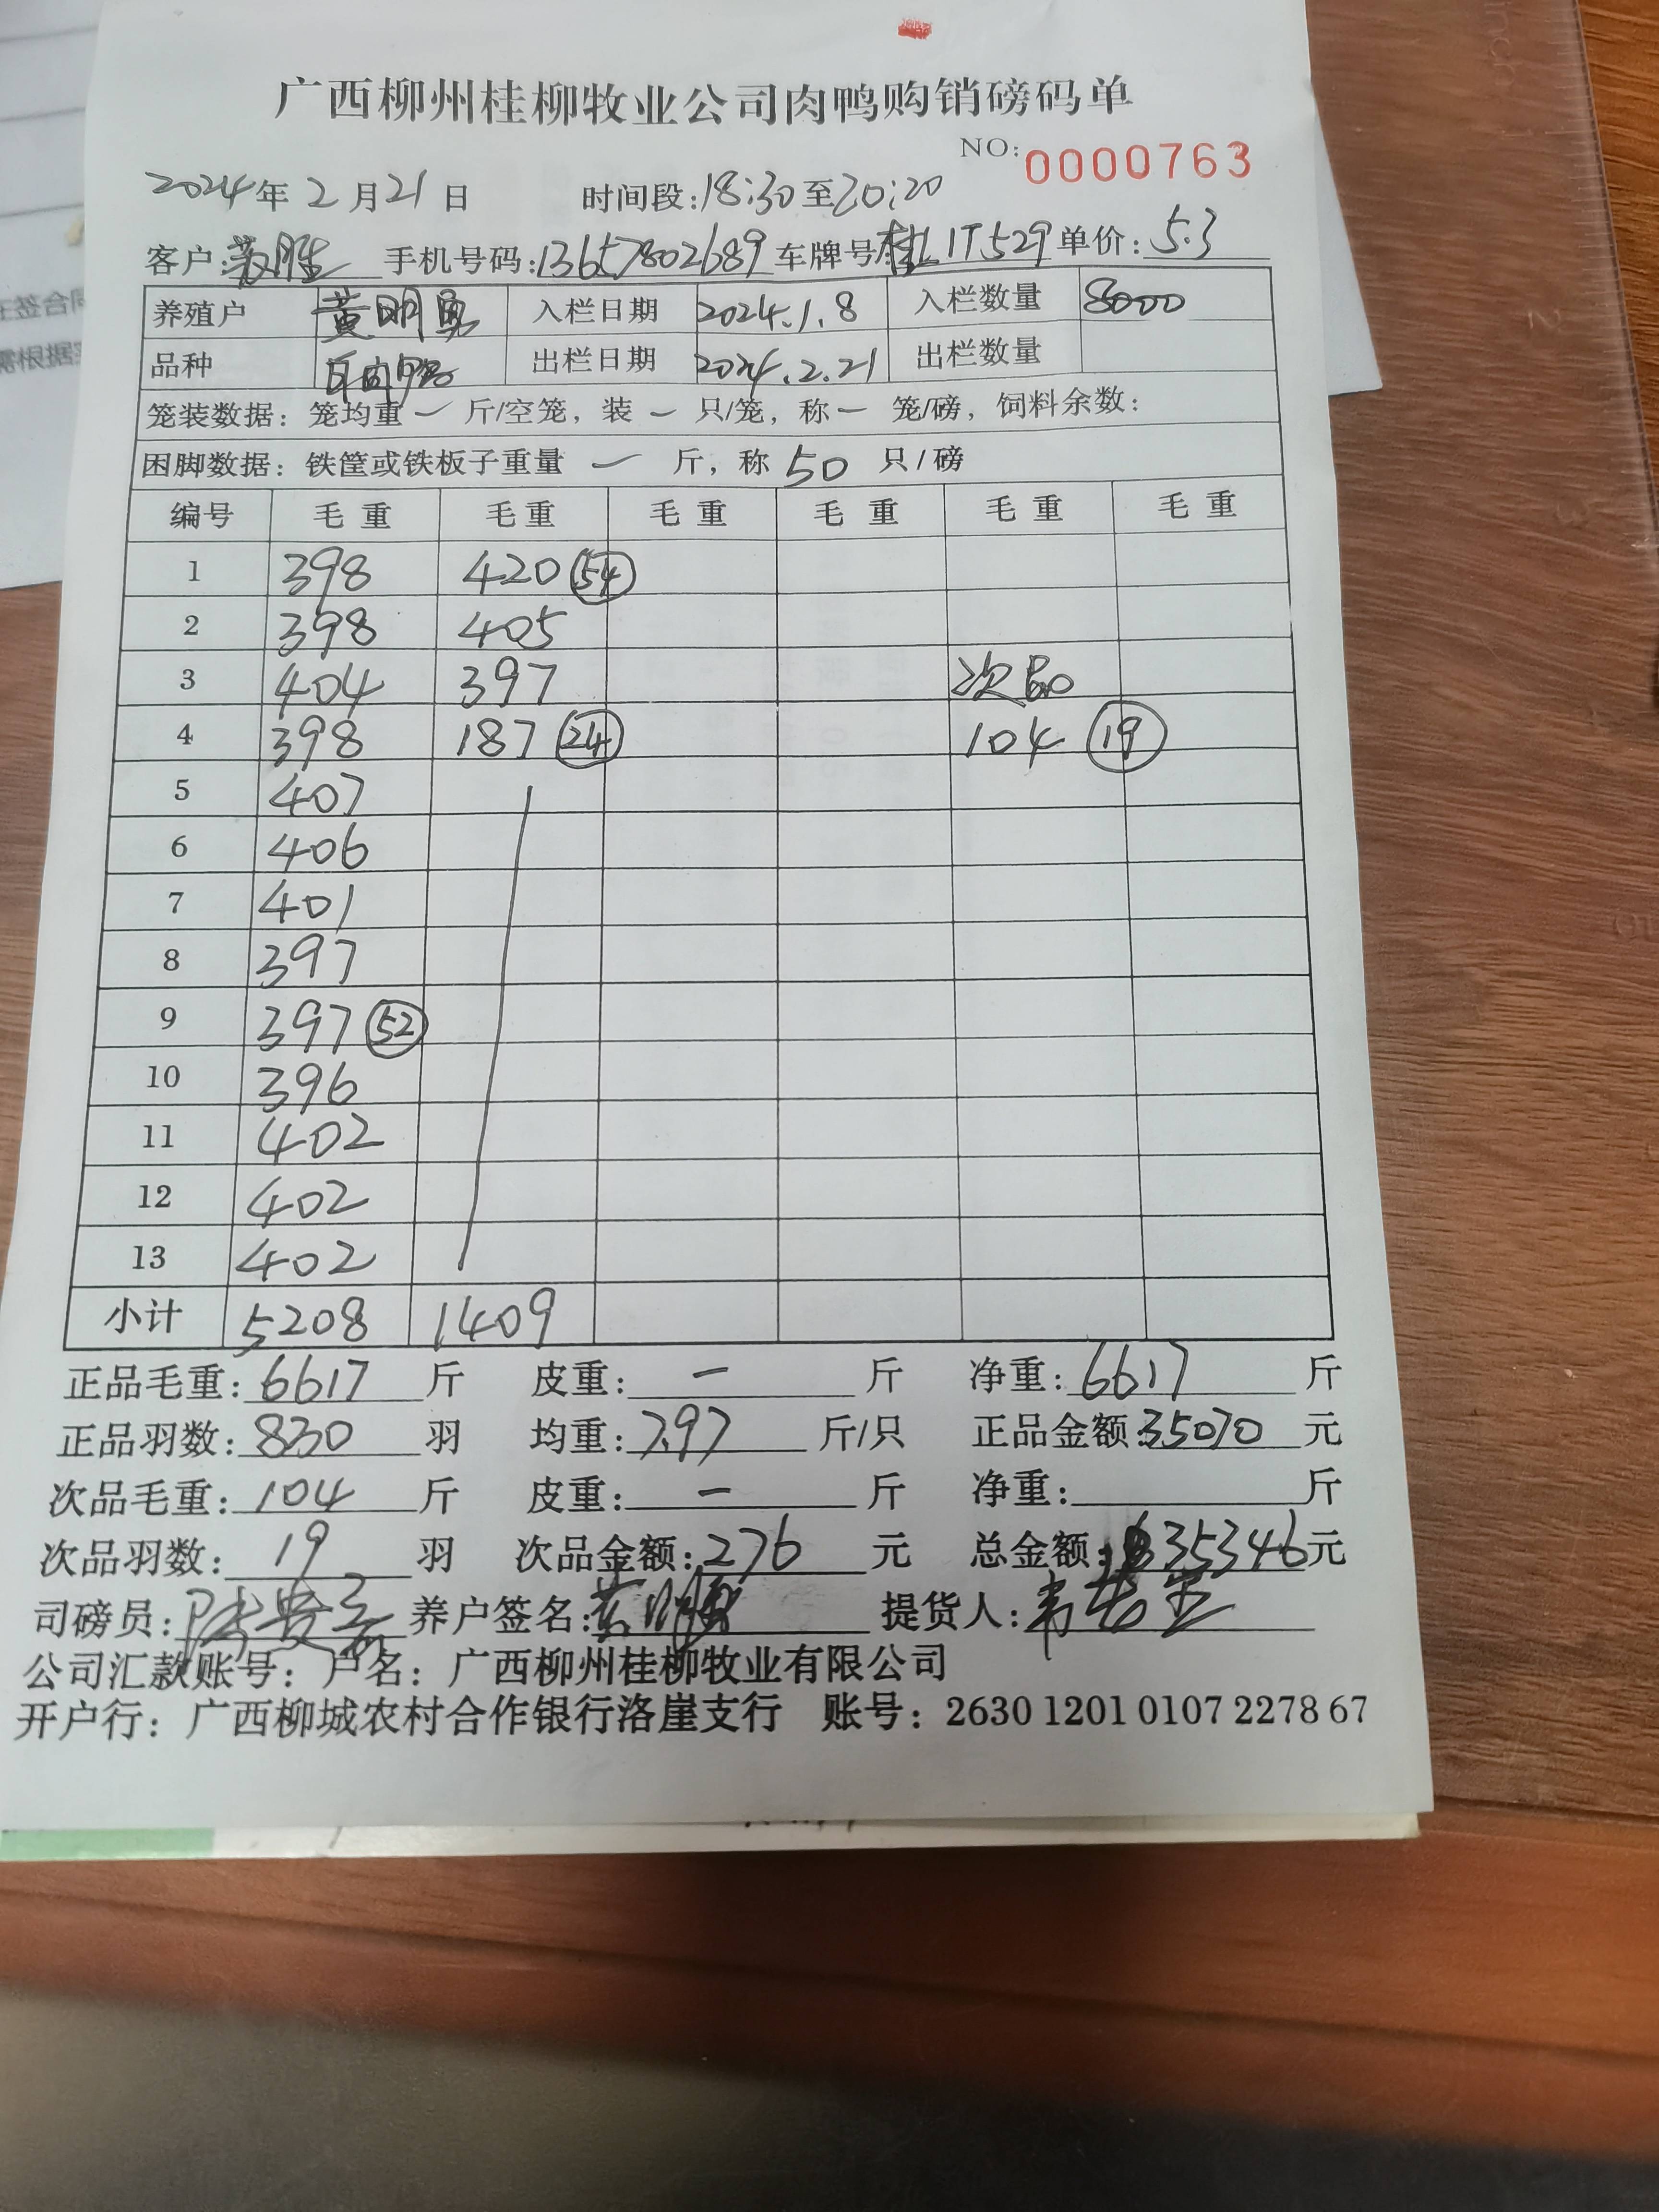 广西柳州桂柳牧业公司肉鸭购销磅码单
NO: 0000763
2024年2月21日 时间段:18:30至20:20
客户: 手机号码:13657802689 车牌号:桂L1T529 单价:5.3
养殖户 黄明勇 入栏日期 2024.1.8 入栏数量 8000
品种 出栏日期 2024.2.21 出栏数量
笼装数据：笼均重 一 斤/空笼，装 一 只/笼，称 一 笼/磅，饲料余数：
困脚数据：铁筐或铁板子重量 一 斤，称 50 只/磅
编号 毛重 毛重 毛重 毛重 毛重 毛重
1 398 420 54
2 398 405
3 404 397 次品
4 398 187 24 104 19
5 407
6 406
7 401
8 397
9 397 52
10 396
11 402
12 402
13 402
小计 5208 1409
正品毛重:6617斤 皮重:一斤 净重:6617斤
正品羽数:830羽 均重:7.97斤/只 正品金额:35070元
次品毛重:104斤 皮重:一斤 净重:斤
次品羽数:19羽 次品金额:276元 总金额:35346元
司磅员: 养户签名: 提货人:
公司汇款账号：户名：广西柳州桂柳牧业有限公司
开户行：广西柳城农村合作银行洛崖支行 账号：2630 1201 0107 2278 67